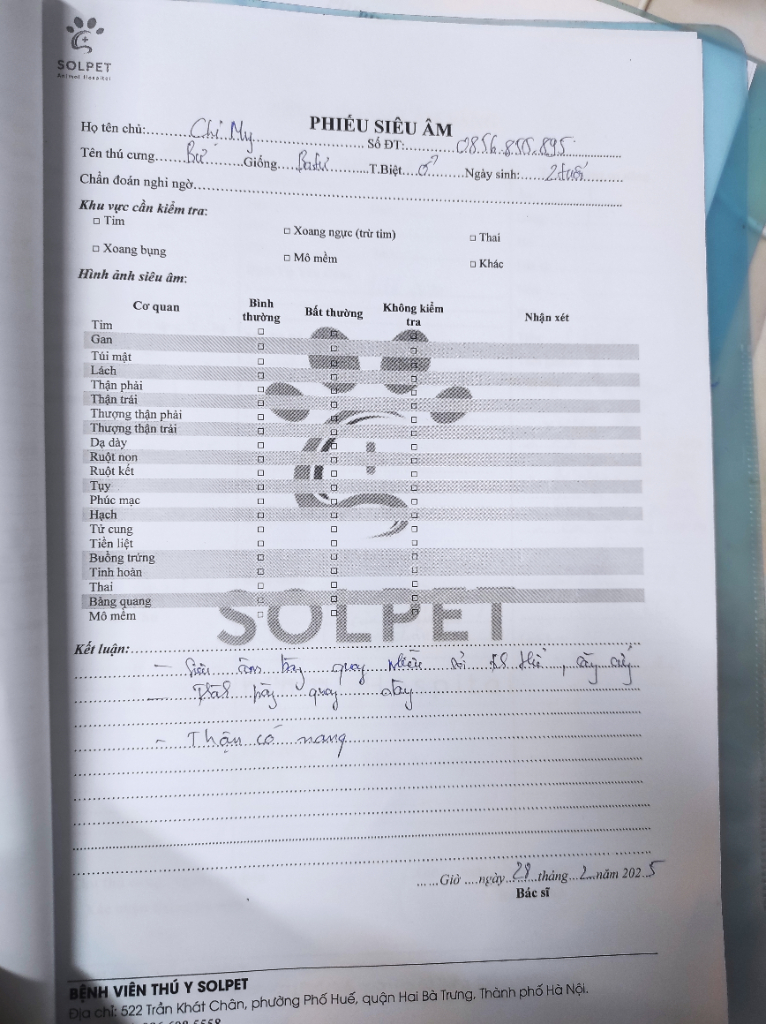 SOLPET
Animal Hospital
PHIẾU SIÊU ÂM
Họ tên chủ: Chị My Số ĐT: 0856.855.895
Tên thú cưng Bư Giống T.Biệt ♂ Ngày sinh: 2 tuổi
Chẩn đoán nghi ngờ
Khu vực cần kiểm tra:
□ Tim □ Xoang ngực (trừ tim) □ Thai
□ Xoang bụng □ Mô mềm □ Khác
Hình ảnh siêu âm:
Cơ quan Bình thường Bất thường Không kiểm tra Nhận xét
Tim □ □ □
Gan □ □ □
Túi mật □ □ □
Lách □ □ □
Thận phải □ □ □
Thận trái □ □ □
Thượng thận phải □ □ □
Thượng thận trái □ □ □
Dạ dày □ □ □
Ruột non □ □ □
Ruột kết □ □ □
Tụy □ □ □
Phúc mạc □ □ □
Hạch □ □ □
Tử cung □ □ □
Tiền liệt □ □ □
Buồng trứng □ □ □
Tinh hoàn □ □ □
Thai □ □ □
Bàng quang □ □ □
Mô mềm □ □ □
SOLPET
Kết luận:
- Siêu âm bàng quang nhiều sỏi
bàng quang dày
- Thận có nang
Giờ ngày 28 tháng 2 năm 2025
Bác sĩ
BỆNH VIỆN THÚ Y SOLPET
Địa chỉ: 522 Trần Khát Chân, phường Phố Huế, quận Hai Bà Trưng, Thành phố Hà Nội.